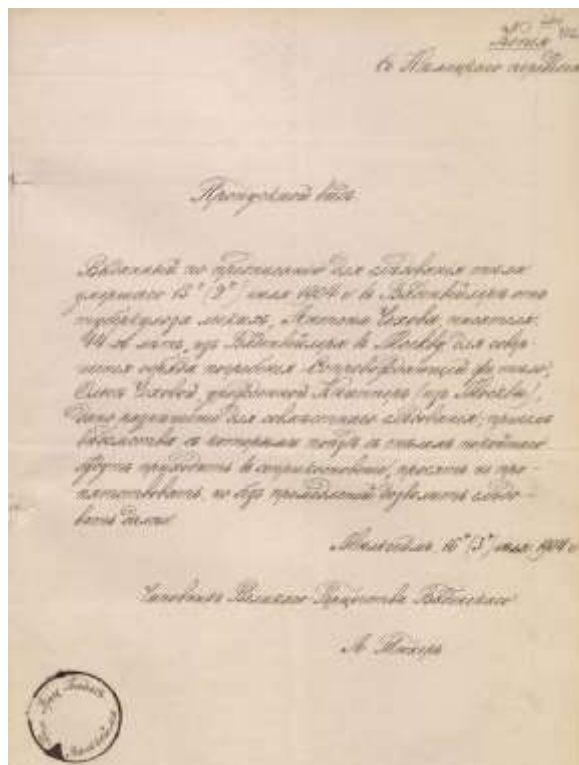 №
Копия
съ Нѣмецкаго перевода
Пропускной видъ
Выданный по предписанію для слѣдованія тѣла
умершаго 15го (2го) іюля 1904 г. въ Баденвейлерѣ отъ
туберкулоза легкихъ, Антона Чехова писателя
44 хъ лѣтъ, изъ Баденвейлера въ Москву для совер-
шенія обряда погребенія. Сопровождающей тѣло,
Ольгѣ Чеховой, урожденной Книпперъ (изъ Москвы),
дано разрѣшеніе для совмѣстнаго слѣдованія; причемъ
вѣдомства съ которыми поѣздъ съ тѣломъ покойнаго
будутъ приходить въ соприкосновеніе, просятъ не пре-
пятствовать, но безъ промедленій дозволить слѣдо-
вать далѣе
16го (3го) іюля 1904 г.
Чиновникъ Великаго Герцогства Баденскаго